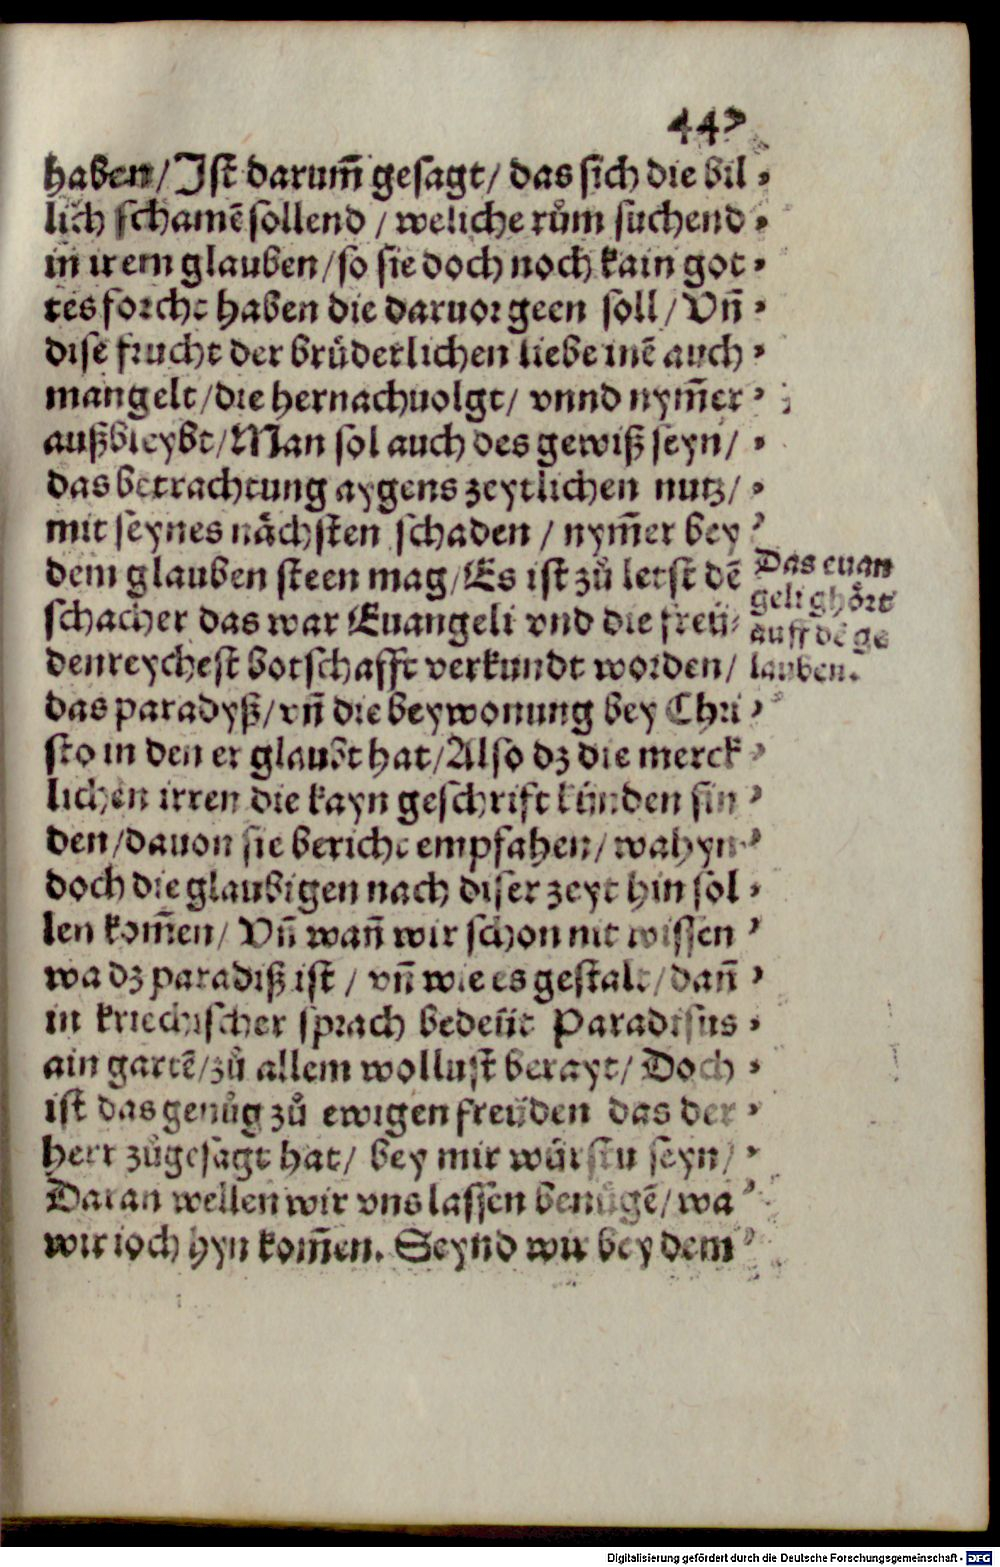 447
haben/ Ist darum̄ gesagt/ das sich die bil
lich schamē sollend / weliche rům suchend
in irem glauben/ so sie doch noch kain got
tes forcht haben die daruor geen soll/ Vn̄
dise frucht der brůderlichen liebe inē auch
mangelt/ die hernachuolgt/ vnnd nym̄er
außbleybt/ Man sol auch des gewiß seyn/
das betrachtung aygens zeytlichen nutz/
mit seynes nåchsten schaden / nym̄er bey
dem glauben steen mag/ Es ist zů letst dē
schacher das war Euangeli vnd die freü-
denreychest botschafft verkundt worden/
das paradyß/ vn̄ die beywonung bey Chri
sto in den er glaubt hat/ Also dz die merck
lichen irren die kayn geschrift künden fin
den/ dauon sie bericht empfahen/ wahyn
doch die glaubigen nach diser zeyt hin sol
len kom̄en/ Vn̄ wan̄ wir schon nit wissen
wa dz paradiß ist / vn̄ wie es gestalt/ dan̄
in kriechischer sprach bedeüt Paradisus
ain gartē/ zů allem wollust berayt/ Doch
ist das genůg zů ewigen freüden das der
herr zůgesagt hat/ bey mir würstu seyn/
Daran wellen wir vns lassen benůgē/ wa
wir ioch hyn kom̄en. Seynd wir bey dem
Das euan
geli ghört
auff dē ge
lauben.
Digitalisierung gefördert durch die Deutsche Forschungsgemeinschaft - DFG